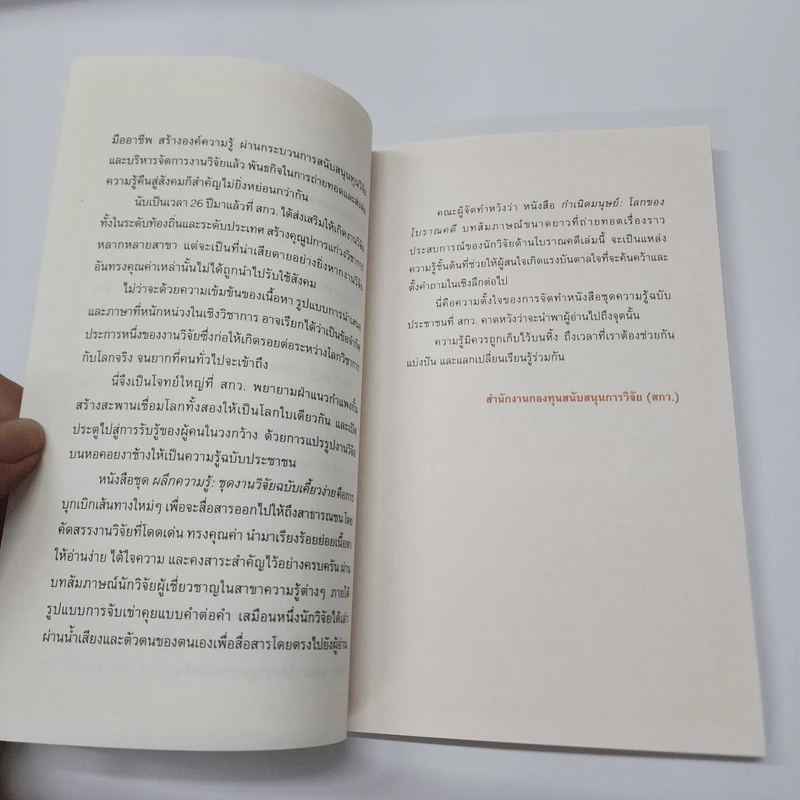 มืออาชีพ สร้างองค์ความรู้ ผ่านกระบวนการสนับสนุนทุนวิจัย
และบริหารจัดการงานวิจัยแล้ว พันธกิจในการถ่ายทอดและส่งต่อ
ความรู้คืนสู่สังคมก็สำคัญไม่ยิ่งหย่อนกว่ากัน
นับเป็นเวลา 26 ปีมาแล้วที่ สกว. ได้ส่งเสริมให้เกิดงานวิจัย
ทั้งในระดับท้องถิ่นและระดับประเทศ สร้างคุณูปการแก่วงวิชาการ
หลากหลายสาขา แต่จะเป็นที่น่าเสียดายอย่างยิ่งหากงานวิจัย
อันทรงคุณค่าเหล่านั้นไม่ได้ถูกนำไปรับใช้สังคม
ไม่ว่าจะด้วยความเข้มข้นของเนื้อหา รูปแบบการนำเสนอ
และภาษาที่หนักหน่วงในเชิงวิชาการ อาจเรียกได้ว่าเป็นข้อจำกัด
ประการหนึ่งของงานวิจัยซึ่งก่อให้เกิดรอยต่อระหว่างโลกวิชาการ
กับโลกจริง จนยากที่คนทั่วไปจะเข้าถึง
นี่จึงเป็นโจทย์ใหญ่ที่ สกว. พยายามฝ่าแนวกำแพงกั้น
สร้างสะพานเชื่อมโลกทั้งสองให้เป็นโลกใบเดียวกัน และเปิด
ประตูไปสู่การรับรู้ของผู้คนในวงกว้าง ด้วยการแปรรูปงานวิจัย
บนหอคอยงาช้างให้เป็นความรู้ฉบับประชาชน
หนังสือชุด ผลึกความรู้: ชุดงานวิจัยฉบับเคี้ยวง่าย คือการ
บุกเบิกเส้นทางใหม่ๆ เพื่อจะสื่อสารออกไปให้ถึงสาธารณชน โดย
คัดสรรงานวิจัยที่โดดเด่น ทรงคุณค่า นำมาเรียงร้อยย่อยเนื้อหา
ให้อ่านง่าย ได้ใจความ และคงสาระสำคัญไว้อย่างครบครัน ผ่าน
บทสัมภาษณ์นักวิจัยผู้เชี่ยวชาญในสาขาความรู้ต่างๆ ภายใต้
รูปแบบการจับเข่าคุยแบบคำต่อคำ เสมือนหนึ่งนักวิจัยได้เล่า
ผ่านน้ำเสียงและตัวตนของตนเองเพื่อสื่อสารโดยตรงไปยังผู้อ่าน
คณะผู้จัดทำหวังว่า หนังสือ กำเนิดมนุษย์: โลกของ
โบราณคดี บทสัมภาษณ์ขนาดยาวที่ถ่ายทอดเรื่องราว
ประสบการณ์ของนักวิจัยด้านโบราณคดีเล่มนี้ จะเป็นแหล่ง
ความรู้ชั้นต้นที่ช่วยให้ผู้สนใจเกิดแรงบันดาลใจที่จะค้นคว้าและ
ตั้งคำถามในเชิงลึกต่อไป
นี่คือความตั้งใจของการจัดทำหนังสือชุดความรู้ฉบับ
ประชาชนที่ สกว. คาดหวังว่าจะนำพาผู้อ่านไปถึงจุดนั้น
ความรู้มิควรถูกเก็บไว้บนหิ้ง ถึงเวลาที่เราต้องช่วยกัน
แบ่งปัน และแลกเปลี่ยนเรียนรู้ร่วมกัน
สำนักงานกองทุนสนับสนุนการวิจัย (สกว.)